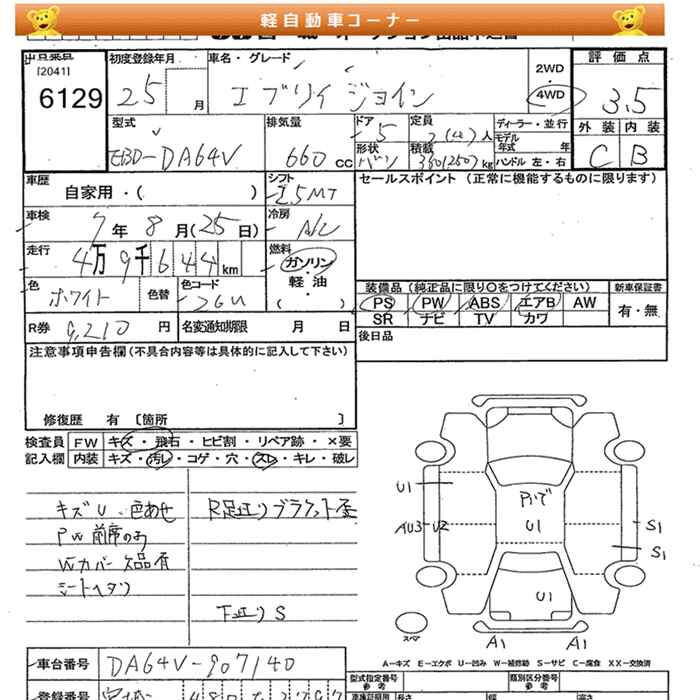 軽自動車コーナー
出品番号
[2041]
6129
初度登録年月
25 月
車名・グレード
エブリィ ジョイン
2WD
4WD
評価点
3.5
型式
EBD-DA64V
排気量
660 cc
ドア
5
形状
バン
定員
2(4)人
積載
350(250)kg
ディーラー・並行
モデル
年式 年
ハンドル 左・右
外装 内装
C B
車歴
自家用・( )
シフト
I5MT
セールスポイント (正常に機能するものに限ります)
車検
7年8月(25日)
冷房
A/C
走行
4万9千644km
燃料
ガソリン
・
軽・油
( )
色
ホワイト
色替
色コード
26U
装備品(純正品に限り○をつけてください)
新車保証書
PS PW ABS エアB AW
SR ナビ TV カワ
有・無
R券 9,210 円
名変通知期限 月 日
後日品
注意事項申告欄(不具合内容等は具体的に記入して下さい)
修復歴 有 〔箇所 〕
検査員 FW キズ・飛石・ヒビ割・リペア跡・×要
記入欄 内装 キズ・汚レ・コゲ・穴・スレ・キレ・破レ
キズU 色あせ
PW前席のみ
Wカバー欠品有
シートヘタリ
R足廻りブラケット歪
下廻りS
U1
AU3-U2
U1
S1
S1
U1
A1
A1
スペア
A-キズ E-エクボ U-凹み W-補修跡 S-サビ C-腐食 XX-交換済
車台番号 DA64V-907140
型式指定番号
参考
類別区分番号
参考
登録番号
長さ
幅
高さ